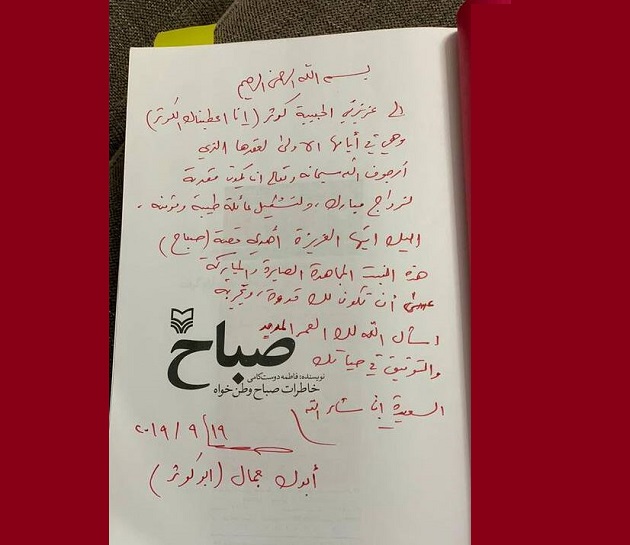 بسم الله الرحمن الرحيم
الى عزيزتي الحبيبة كوثر (إنا اعطيناك الكوثر)
وهي في أيامها الاولى لعقدها الذي
أرجو من الله سبحانه وتعالى ان يكون مقدمة
لزواج مبارك، ولتشكيل عائلة طيبة ومؤمنة.
اليك ايتها العزيزة أهدي قصة (صباح)
هذه البنت المجاهدة الصابرة والمباركة
عسى أن تكون لك قدوة، وتجربة
اسأل الله لك العمر المديد
والتوفيق في حياتك
السعيدة إنا شاء الله
صباح
نویسنده: فاطمه دوست‌کامی
خاطرات صباح وطن‌خواه
٢٠١٩ / ٩ / ١٩
أبوك جمال (ابو كوثر)